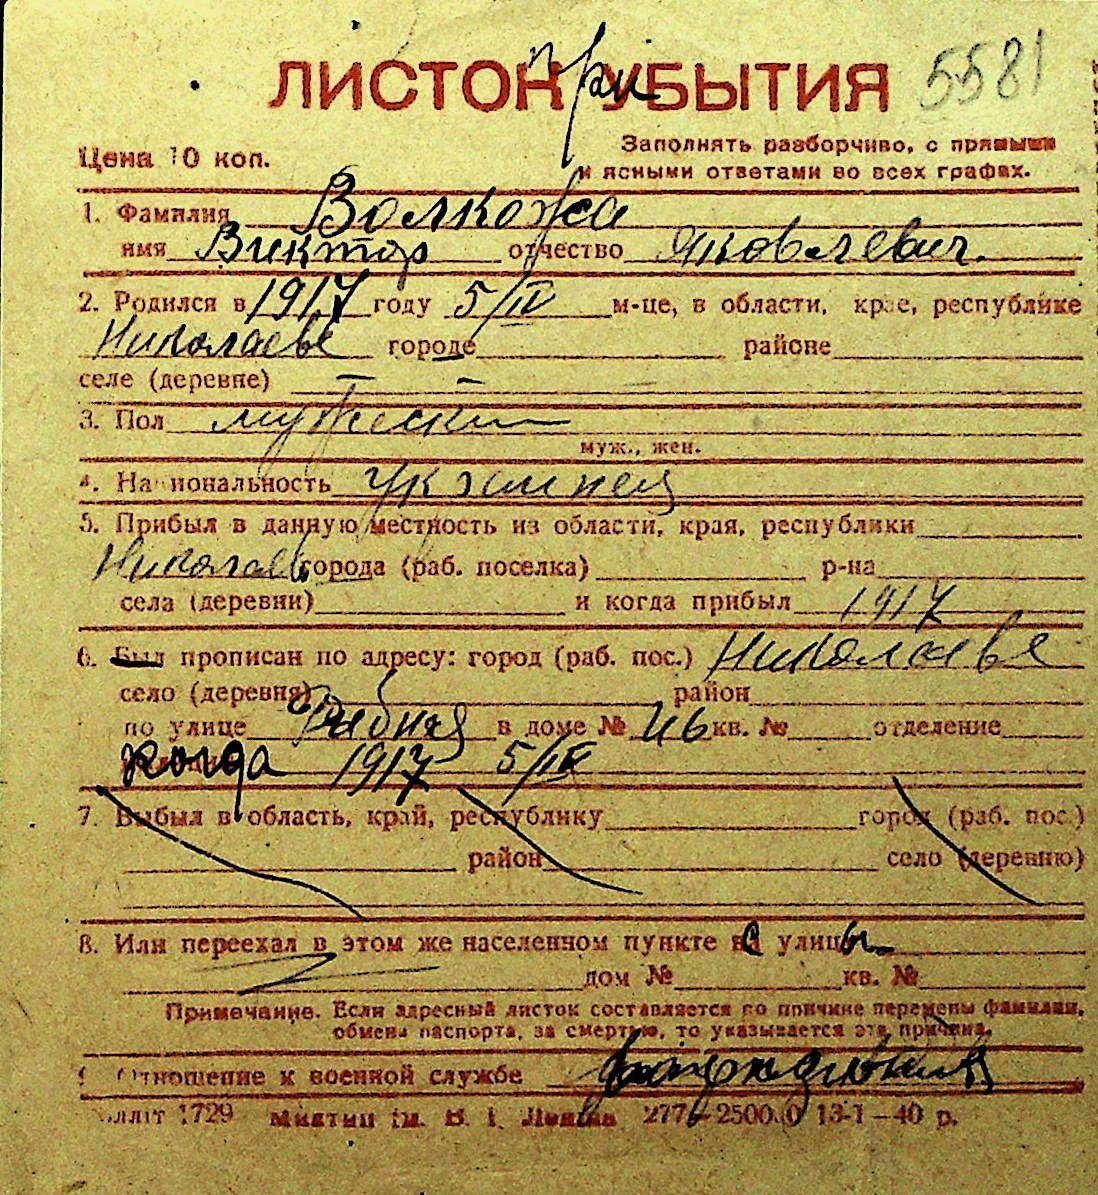 при
ЛИСТОК УБЫТИЯ 5581
Цена 10 коп. Заполнять разборчиво, с прямыми
и ясными ответами во всех графах.
1. Фамилия Волкожа
имя Виктор отчество Яковлевич.
2. Родился в 1917 году 5/IV м-це, в области, крае, республике
Николаеве городе районе
селе (деревне)
3. Пол мужеский
муж., жен.
4. Национальность Украинец
5. Прибыл в данную местность из области, края, республики
Николаев города (раб. поселка) р-на
села (деревни) и когда прибыл 1917
6. Был прописан по адресу: город (раб. пос.) Николаеве
село (деревня) район
по улице Рыбная в доме № кв. № отделение
когда 1917 5/IV
7. Выбыл в область, край, республику город (раб. пос.)
район село (деревню)
8. Или переехал в этом же населенном пункте с улицы
дом № кв. №
Примечание. Если адресный листок составляется по причине перемены фамилии,
обмена паспорта, за смертью, то указывается эта причина.
9. Отношение к военной службе
1729 ім. В. І. Леніна 277—2500 13-1—40 р.